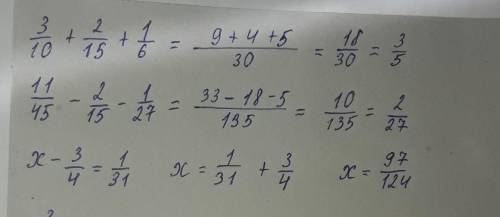 3/10 + 2/15 + 1/6 = (9 + 4 + 5)/30 = 18/30 = 3/5
11/45 - 2/15 - 1/27 = (33 - 18 - 5)/135 = 10/135 = 2/27
x - 3/4 = 1/31 x = 1/31 + 3/4 x = 97/124